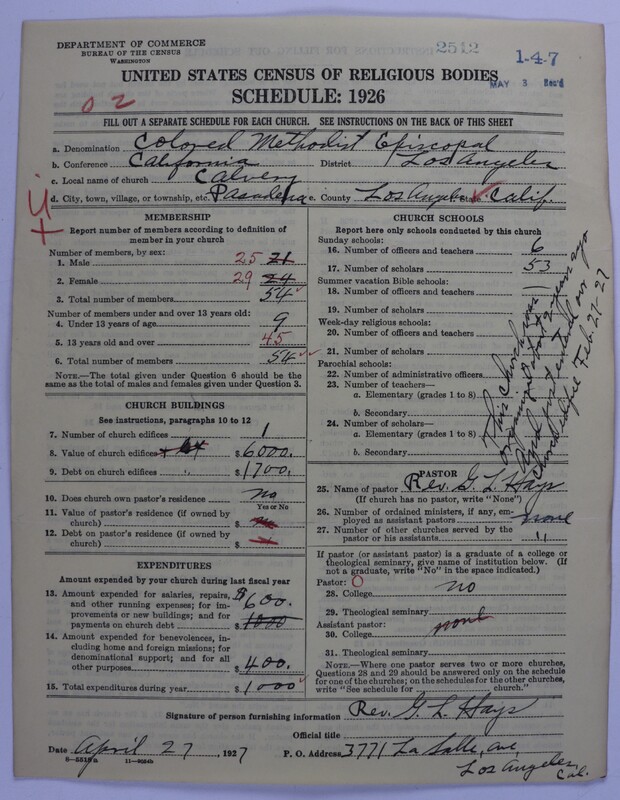 DEPARTMENT OF COMMERCE
BUREAU OF THE CENSUS
WASHINGTON
2512
1-4-7
MAY 3 Rec'd
UNITED STATES CENSUS OF RELIGIOUS BODIES
SCHEDULE: 1926
02
FILL OUT A SEPARATE SCHEDULE FOR EACH CHURCH. SEE INSTRUCTIONS ON THE BACK OF THIS SHEET
a. Denomination Colored Methodist Episcopal
b. Conference California District Los Angeles
c. Local name of church Calvery
d. City, town, village, or township, etc. Pasadena e. County Los Angeles State Calif.
MEMBERSHIP
Report number of members according to definition of member in your church
Number of members, by sex:
1. Male 25 21
2. Female 29 24
3. Total number of members 54
Number of members under and over 13 years old:
4. Under 13 years of age 9
5. 13 years old and over 45
6. Total number of members 54
NOTE.—The total given under Question 6 should be the same as the total of males and females given under Question 3.
CHURCH BUILDINGS
See instructions, paragraphs 10 to 12
7. Number of church edifices 1
8. Value of church edifices $ 6000.
9. Debt on church edifices $ 1700.
10. Does church own pastor's residence no
Yes or No
11. Value of pastor's residence (if owned by church) $
12. Debt on pastor's residence (if owned by church) $
EXPENDITURES
Amount expended by your church during last fiscal year
13. Amount expended for salaries, repairs, and other running expenses; for improvements or new buildings; and for payments on church debt $ 600. 1000
14. Amount expended for benevolences, including home and foreign missions; for denominational support; and for all other purposes $ 400.
15. Total expenditures during year $ 1000
CHURCH SCHOOLS
Report here only schools conducted by this church
Sunday schools:
16. Number of officers and teachers 6
17. Number of scholars 53
Summer vacation Bible schools:
18. Number of officers and teachers
19. Number of scholars
Week-day religious schools:
20. Number of officers and teachers
21. Number of scholars
Parochial schools:
22. Number of administrative officers
23. Number of teachers—
a. Elementary (grades 1 to 8)
b. Secondary
24. Number of scholars—
a. Elementary (grades 1 to 8)
b. Secondary
This church was
organized about 2 years ago
April first entered our
church edifice Feb. 27-27
PASTOR
25. Name of pastor Rev. G. L. Hays
(If church has no pastor, write "None")
26. Number of ordained ministers, if any, employed as assistant pastors none
27. Number of other churches served by the pastor or his assistants "
If pastor (or assistant pastor) is a graduate of a college or theological seminary, give name of institution below. (If not a graduate, write "No" in the space indicated.)
Pastor: O
28. College no
29. Theological seminary
Assistant pastor:
30. College none
31. Theological seminary
NOTE.—Where one pastor serves two or more churches, Questions 28 and 29 should be answered only on the schedule for one of the churches; on the schedules for the other churches, write "See schedule for church."
Signature of person furnishing information Rev. G. L. Hays
Official title
Date April 27, 1927 P. O. Address 3771 La Salle, ave,
Los Angeles, Cal.
8-5518a 11-9084b